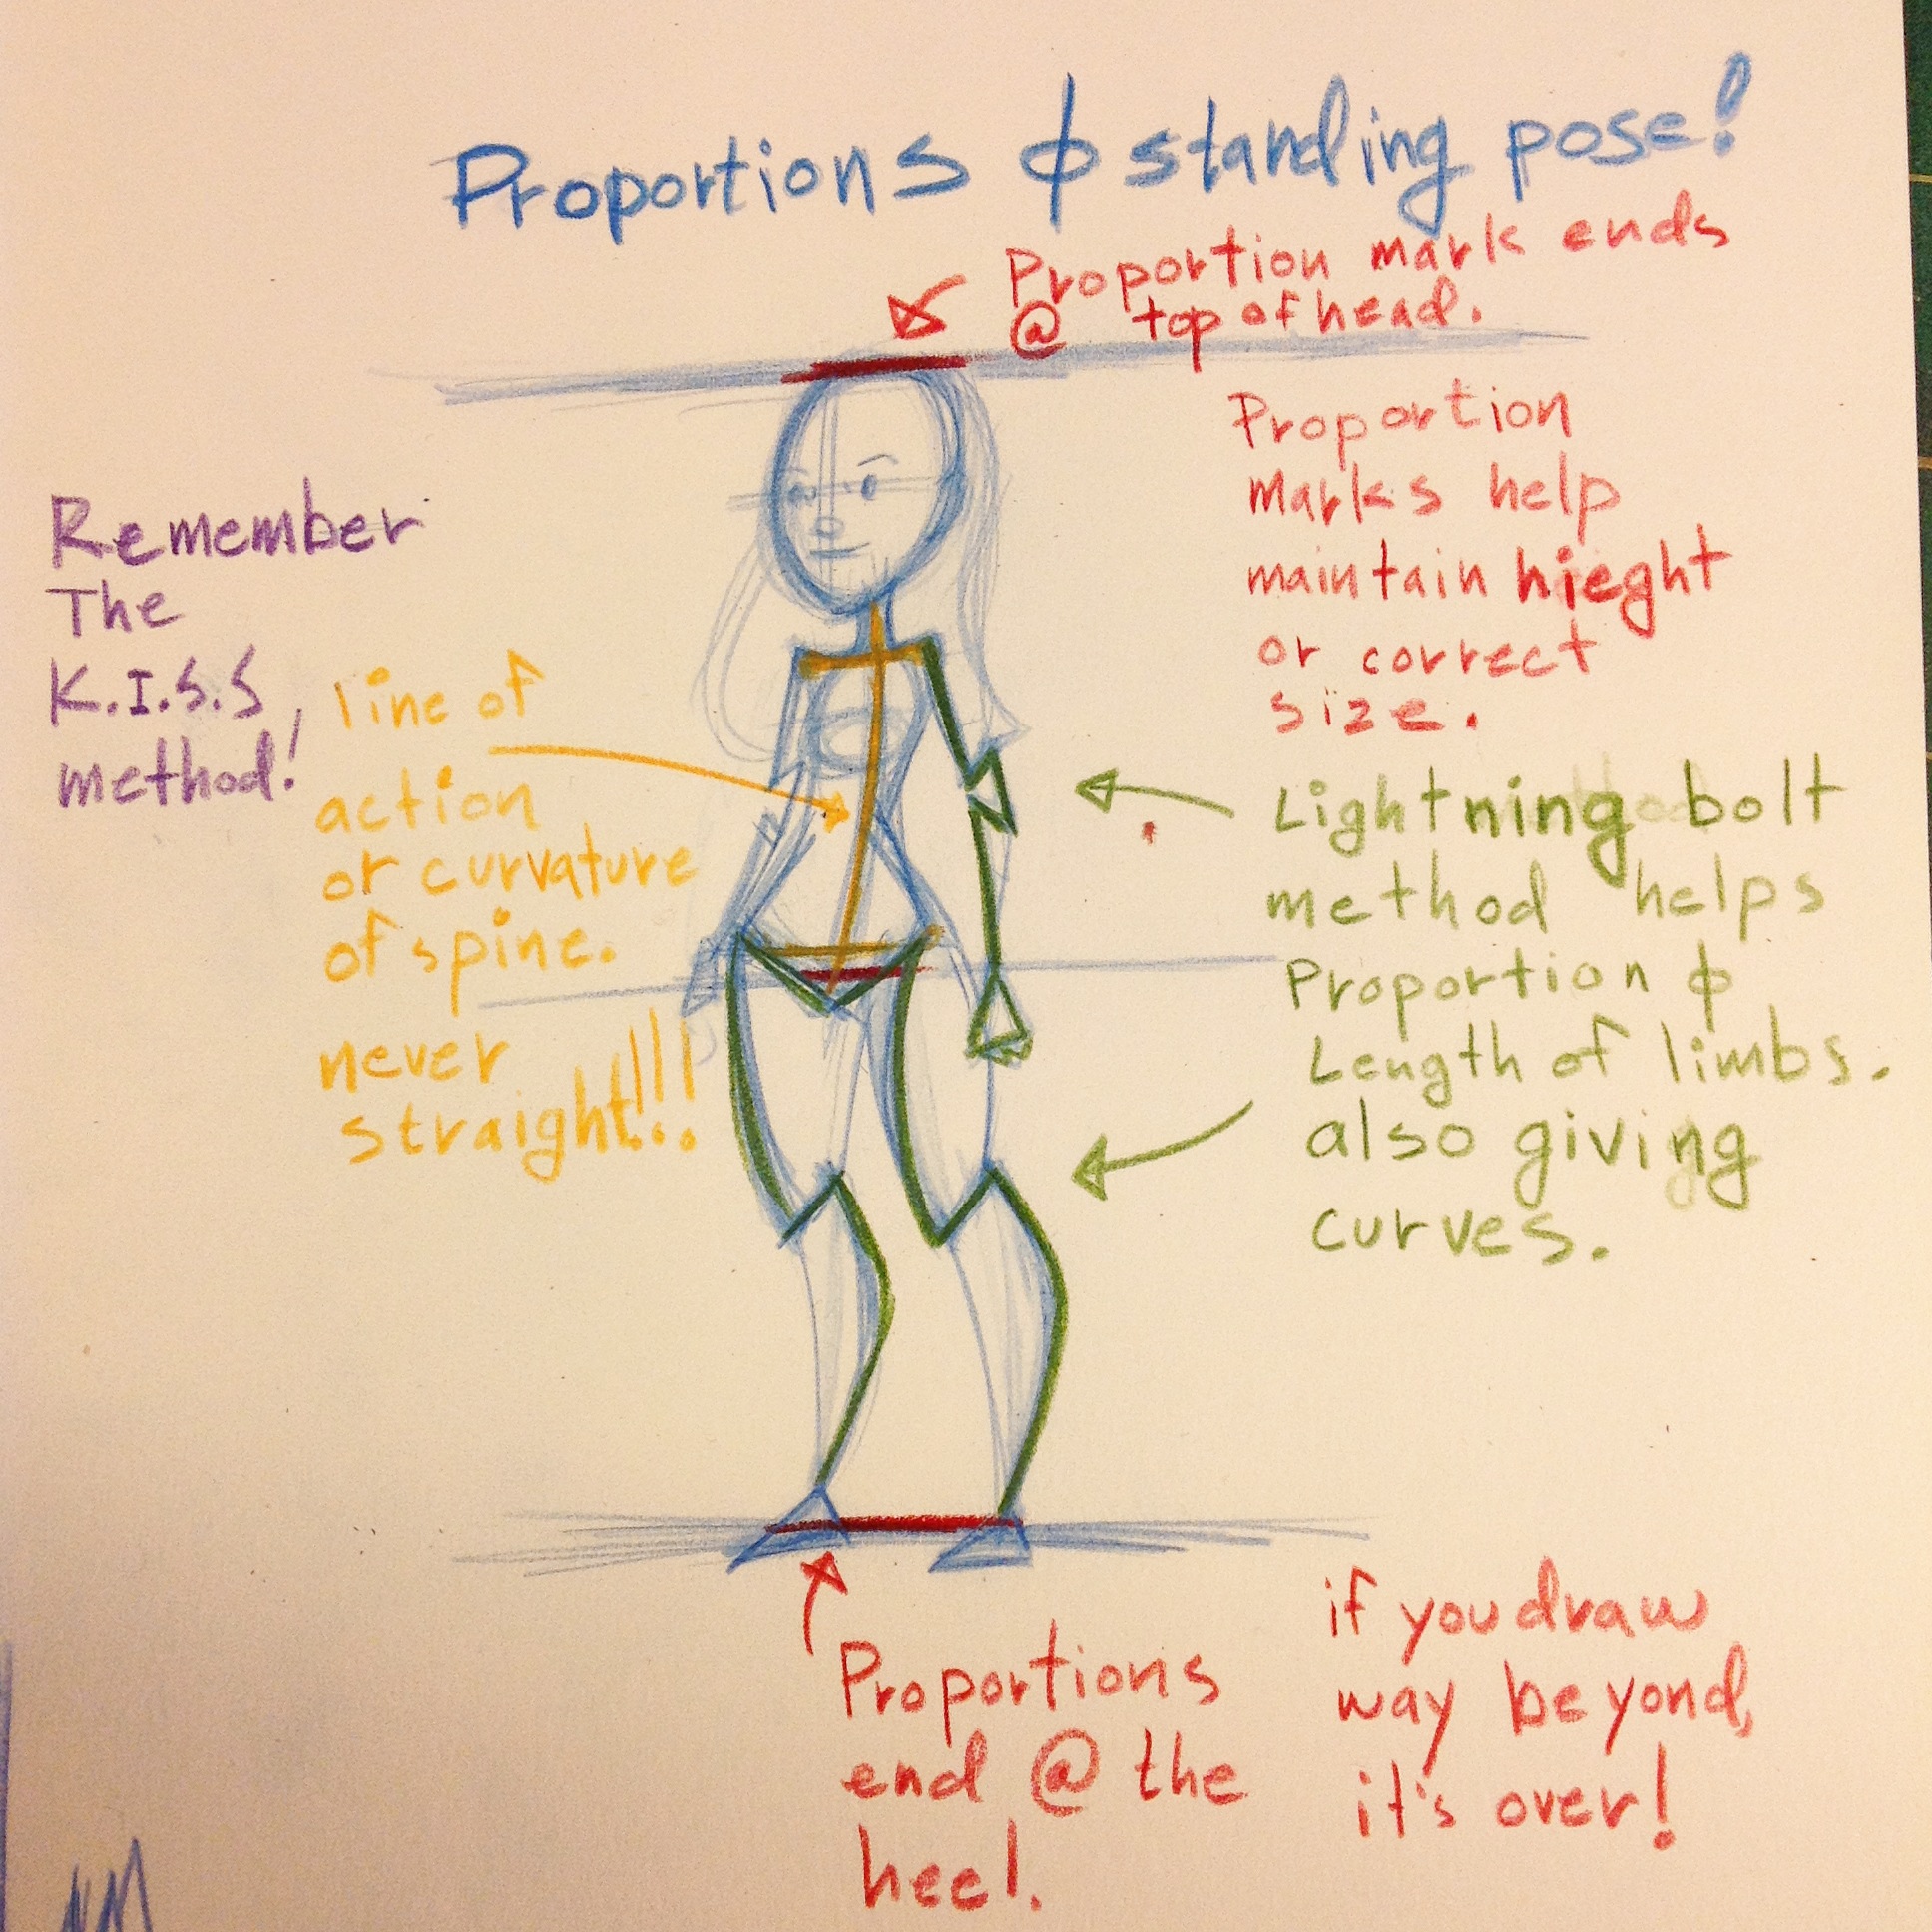 Proportions & standing pose!
Proportion mark ends
@ top of head.
Proportion
marks help
maintain hieght
or correct
size.
Remember
The
K.I.S.S
method!
line of
action
or curvature
of spine.
never
straight!!!
Lightning bolt
method helps
Proportion &
Length of limbs.
also giving
curves.
Proportions
end @ the
heel.
if you draw
way beyond,
it's over!